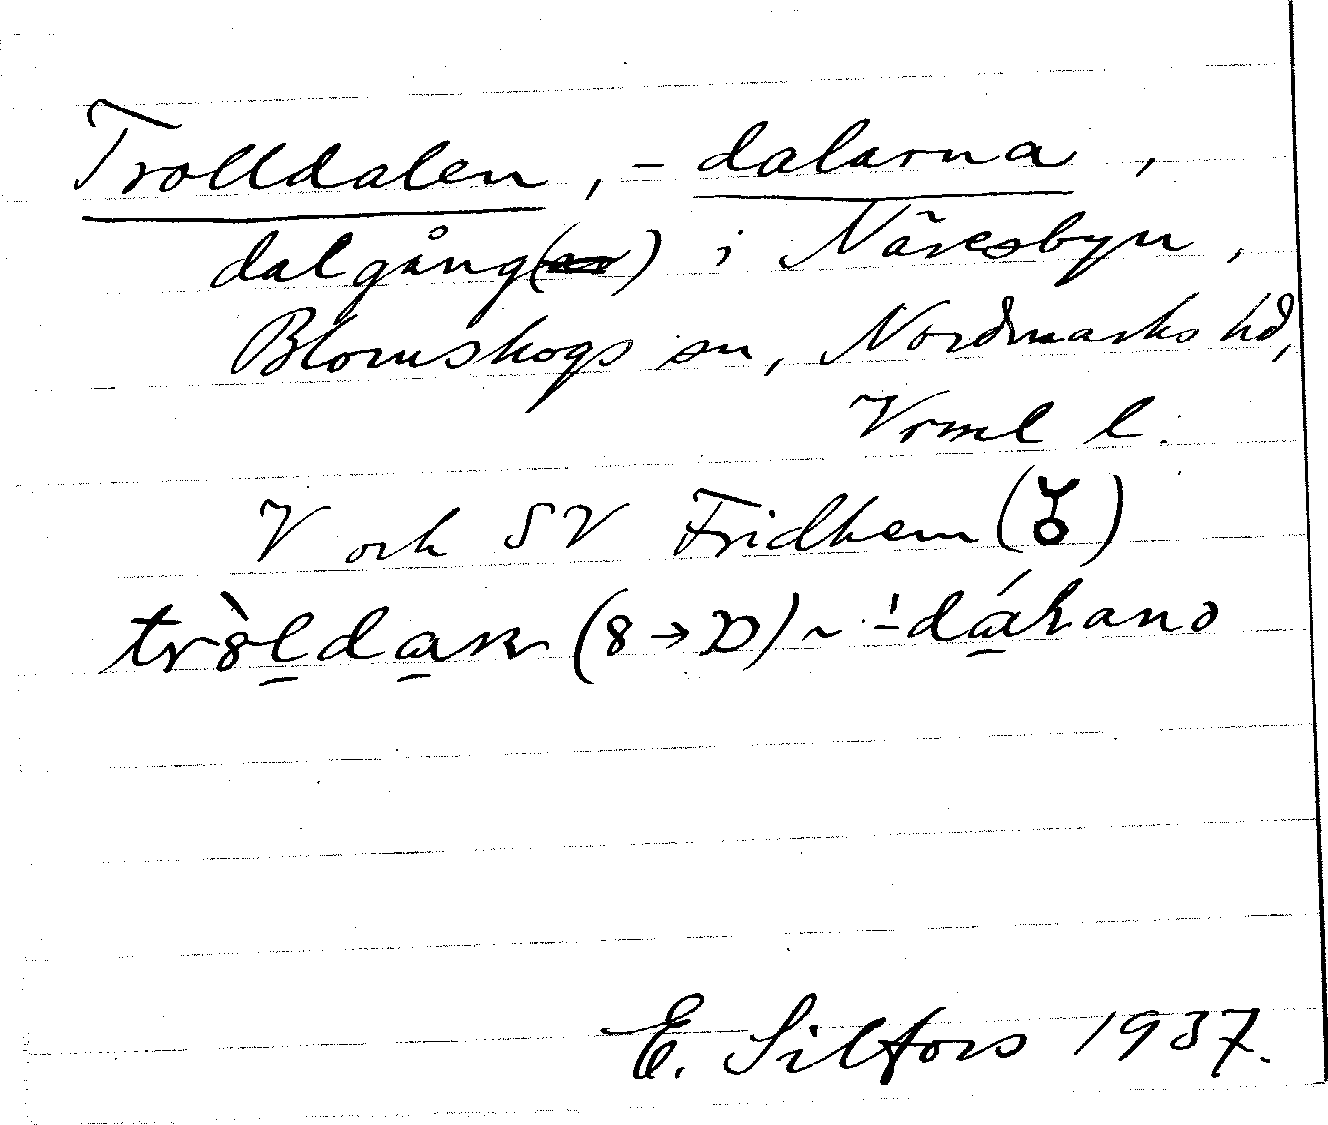 Trolldalen, -dalarna,
dalgång(ar) i Näresbyn,
Blomskogs sn, Nordmarks hd,
Vrml l.
V och SV Fridhem (♉)
E. Silfors 1937.